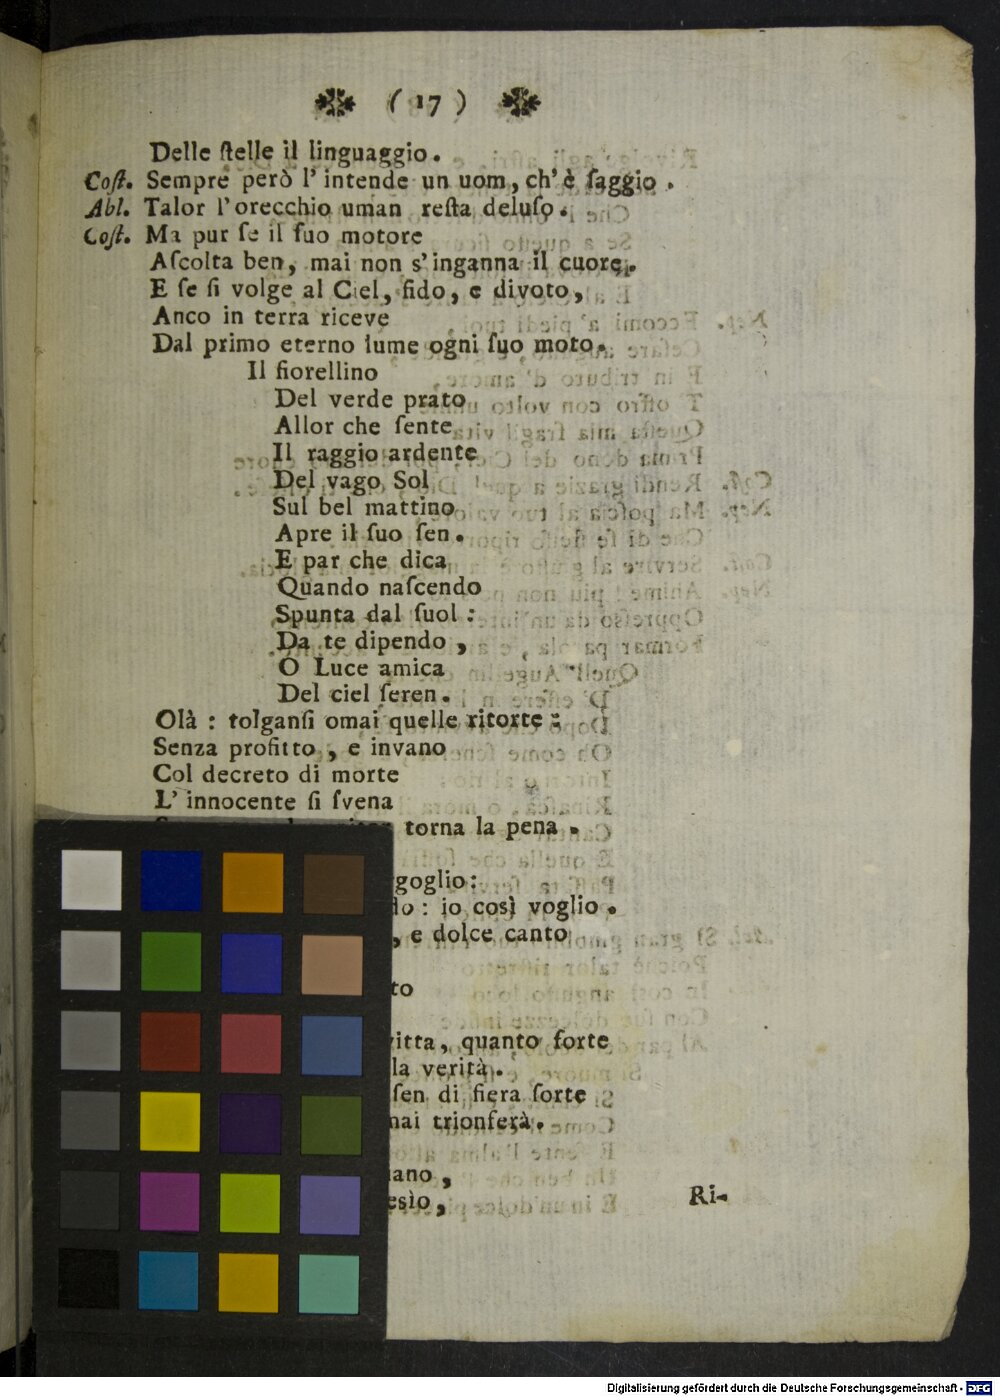 ( 17 )
Delle ſtelle il linguaggio.
Coſt. Sempre però l' intende un uom, ch' è ſaggio.
Abl. Talor l' orecchio uman reſta deluſo.
Coſt. Ma pur ſe il ſuo motore
Aſcolta ben, mai non s' inganna il cuore.
E ſe ſi volge al Ciel, fido, e divoto,
Anco in terra riceve
Dal primo eterno lume ogni ſuo moto.
Il fiorellino
Del verde prato
Allor che ſente
Il raggio ardente
Del vago Sol
Sul bel mattino
Apre il ſuo ſen.
E par che dica
Quando naſcendo
Spunta dal ſuol:
Da te dipendo,
O Luce amica
Del ciel ſeren.
Olà: tolganſi omai quelle ritorte:
Senza profitto, e invano
Col decreto di morte
L' innocente ſi ſvena
torna la pena.
goglio:
do: io così voglio.
, e dolce canto
to
itta, quanto forte
la verità.
ſen di fiera ſorte
mai trionferà.
ano,
esìo,
Ri-
Digitalisierung gefördert durch die Deutsche Forschungsgemeinschaft - DFG